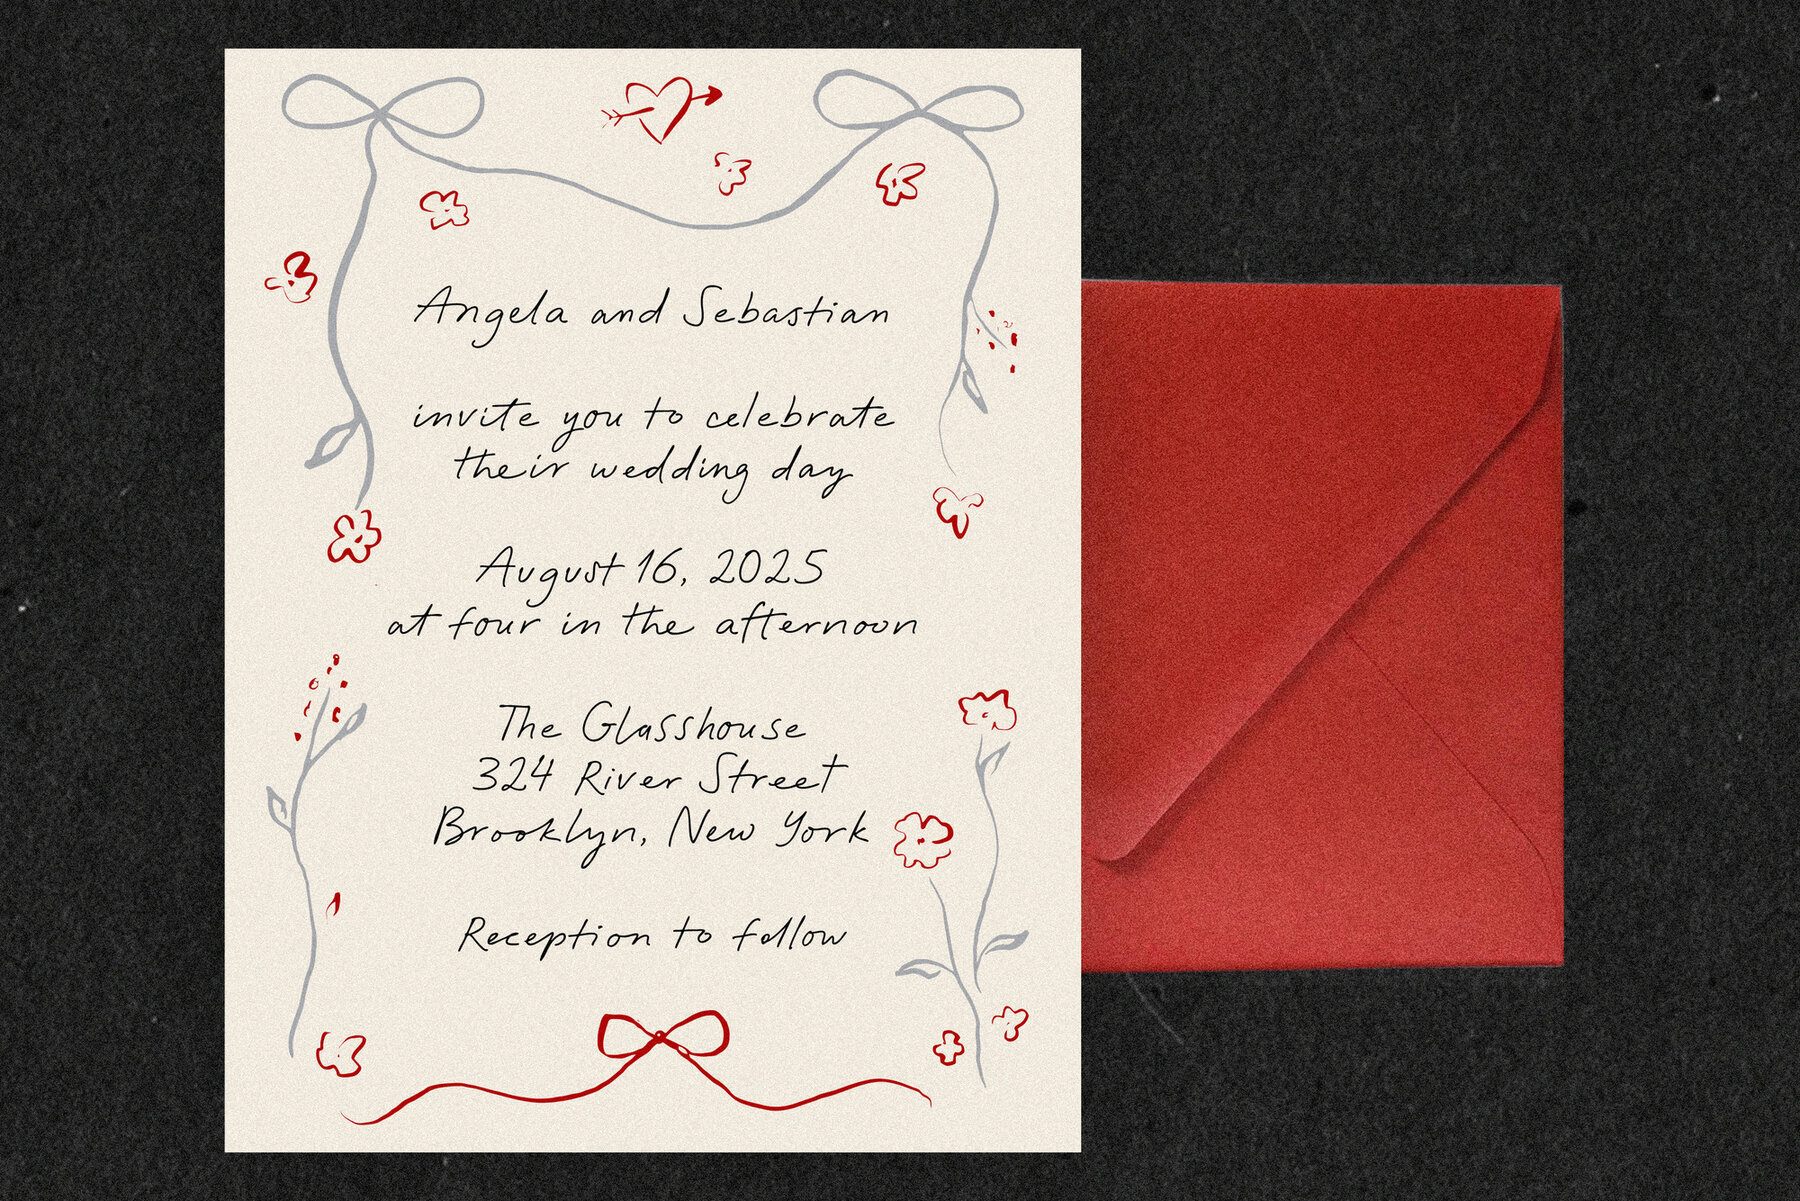 Angela and Sebastian
invite you to celebrate
their wedding day
August 16, 2025
at four in the afternoon
The Glasshouse
324 River Street
Brooklyn, New York
Reception to follow